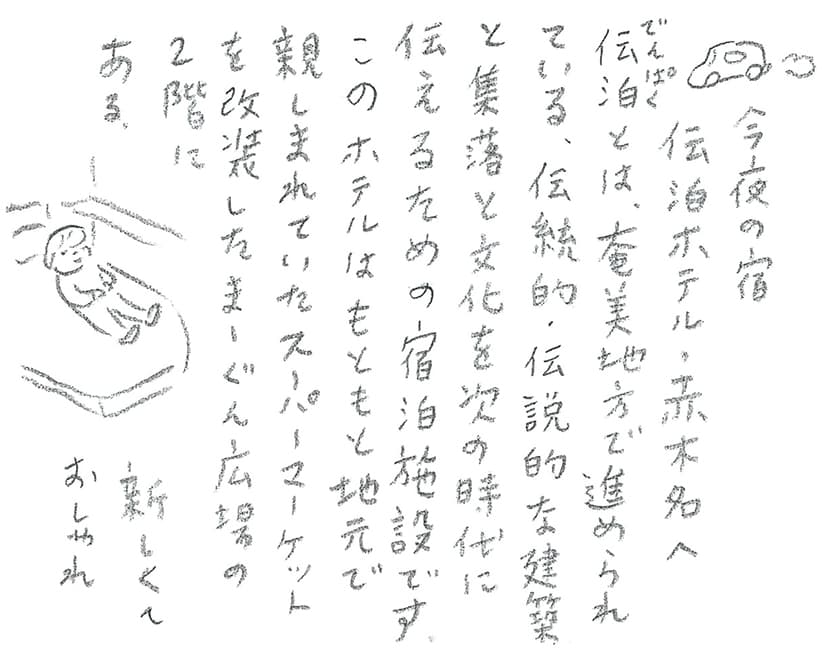 今夜の宿
伝泊ホテル・赤木名へ
でんぱく
伝泊とは、奄美地方で進められ
ている、伝統的・伝説的な建築
と集落と文化を次の時代に
伝えるための宿泊施設です。
このホテルはもともと地元で
親しまれていたスーパーマーケット
を改装したまーぐん広場の
2階に
ある。
新しくて
おしゃれ